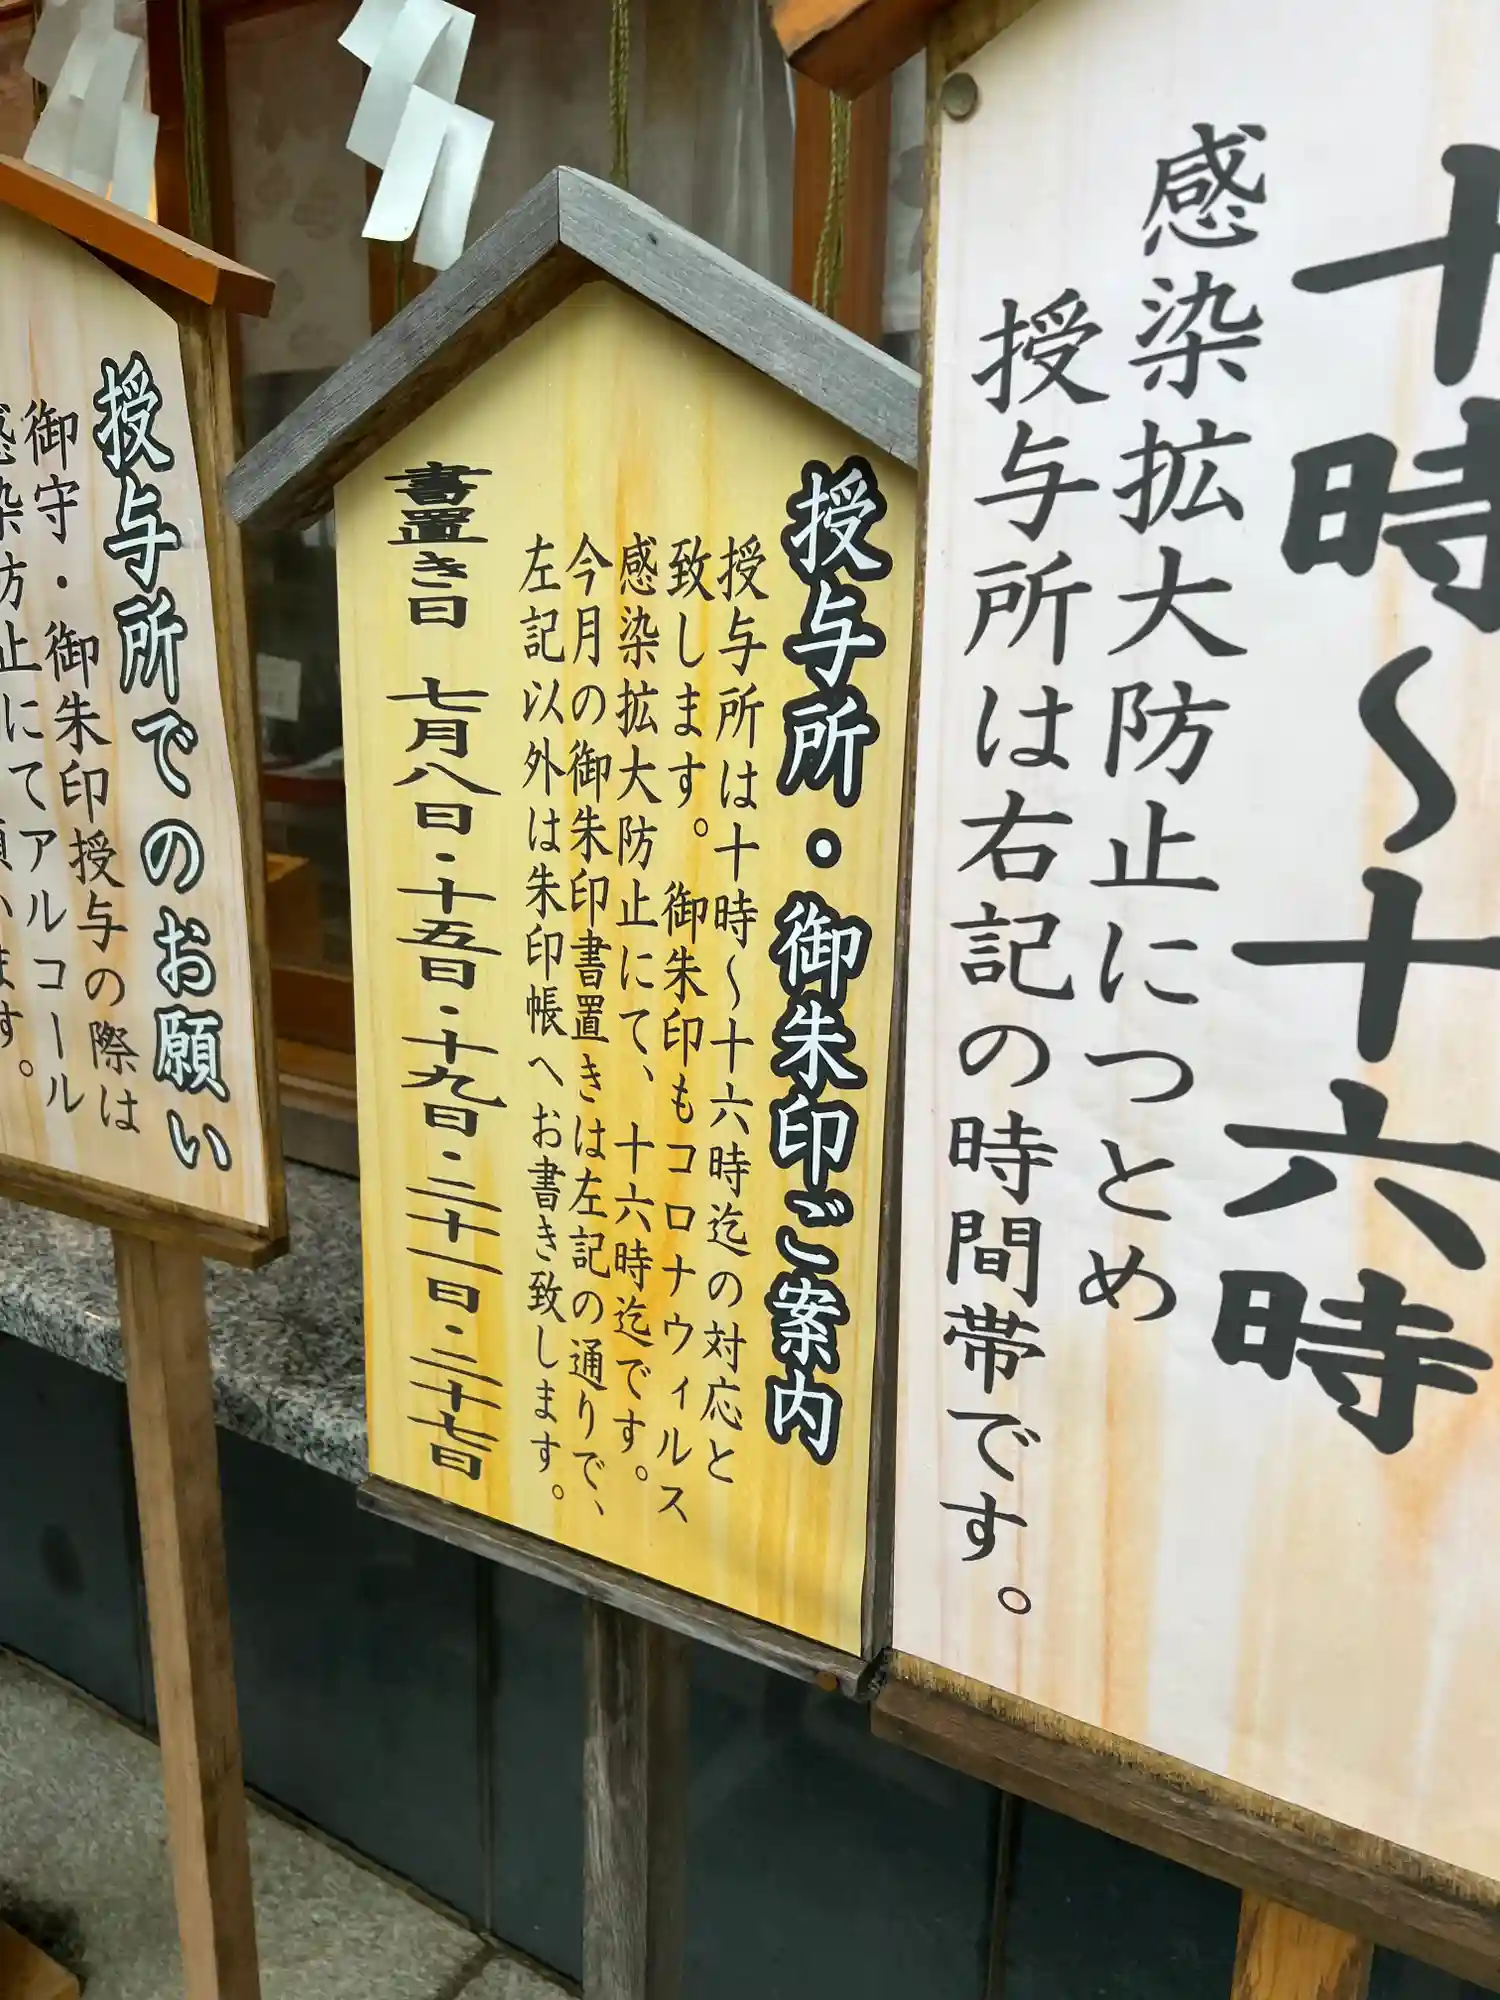 十時〜十六時
感染拡大防止につとめ
授与所は右記の時間帯です。
授与所・御朱印ご案内
授与所は十時〜十六時迄の対応と
致します。 御朱印もコロナウィルス
感染拡大防止にて、十六時迄です。
今月の御朱印書置きは左記の通りで、
左記以外は朱印帳へお書き致します。
書置き日 七月八日・十五日・十九日・二十一日・二十七日
授与所でのお願い
御守・御朱印授与の際は
感染防止にてアルコール
願います。